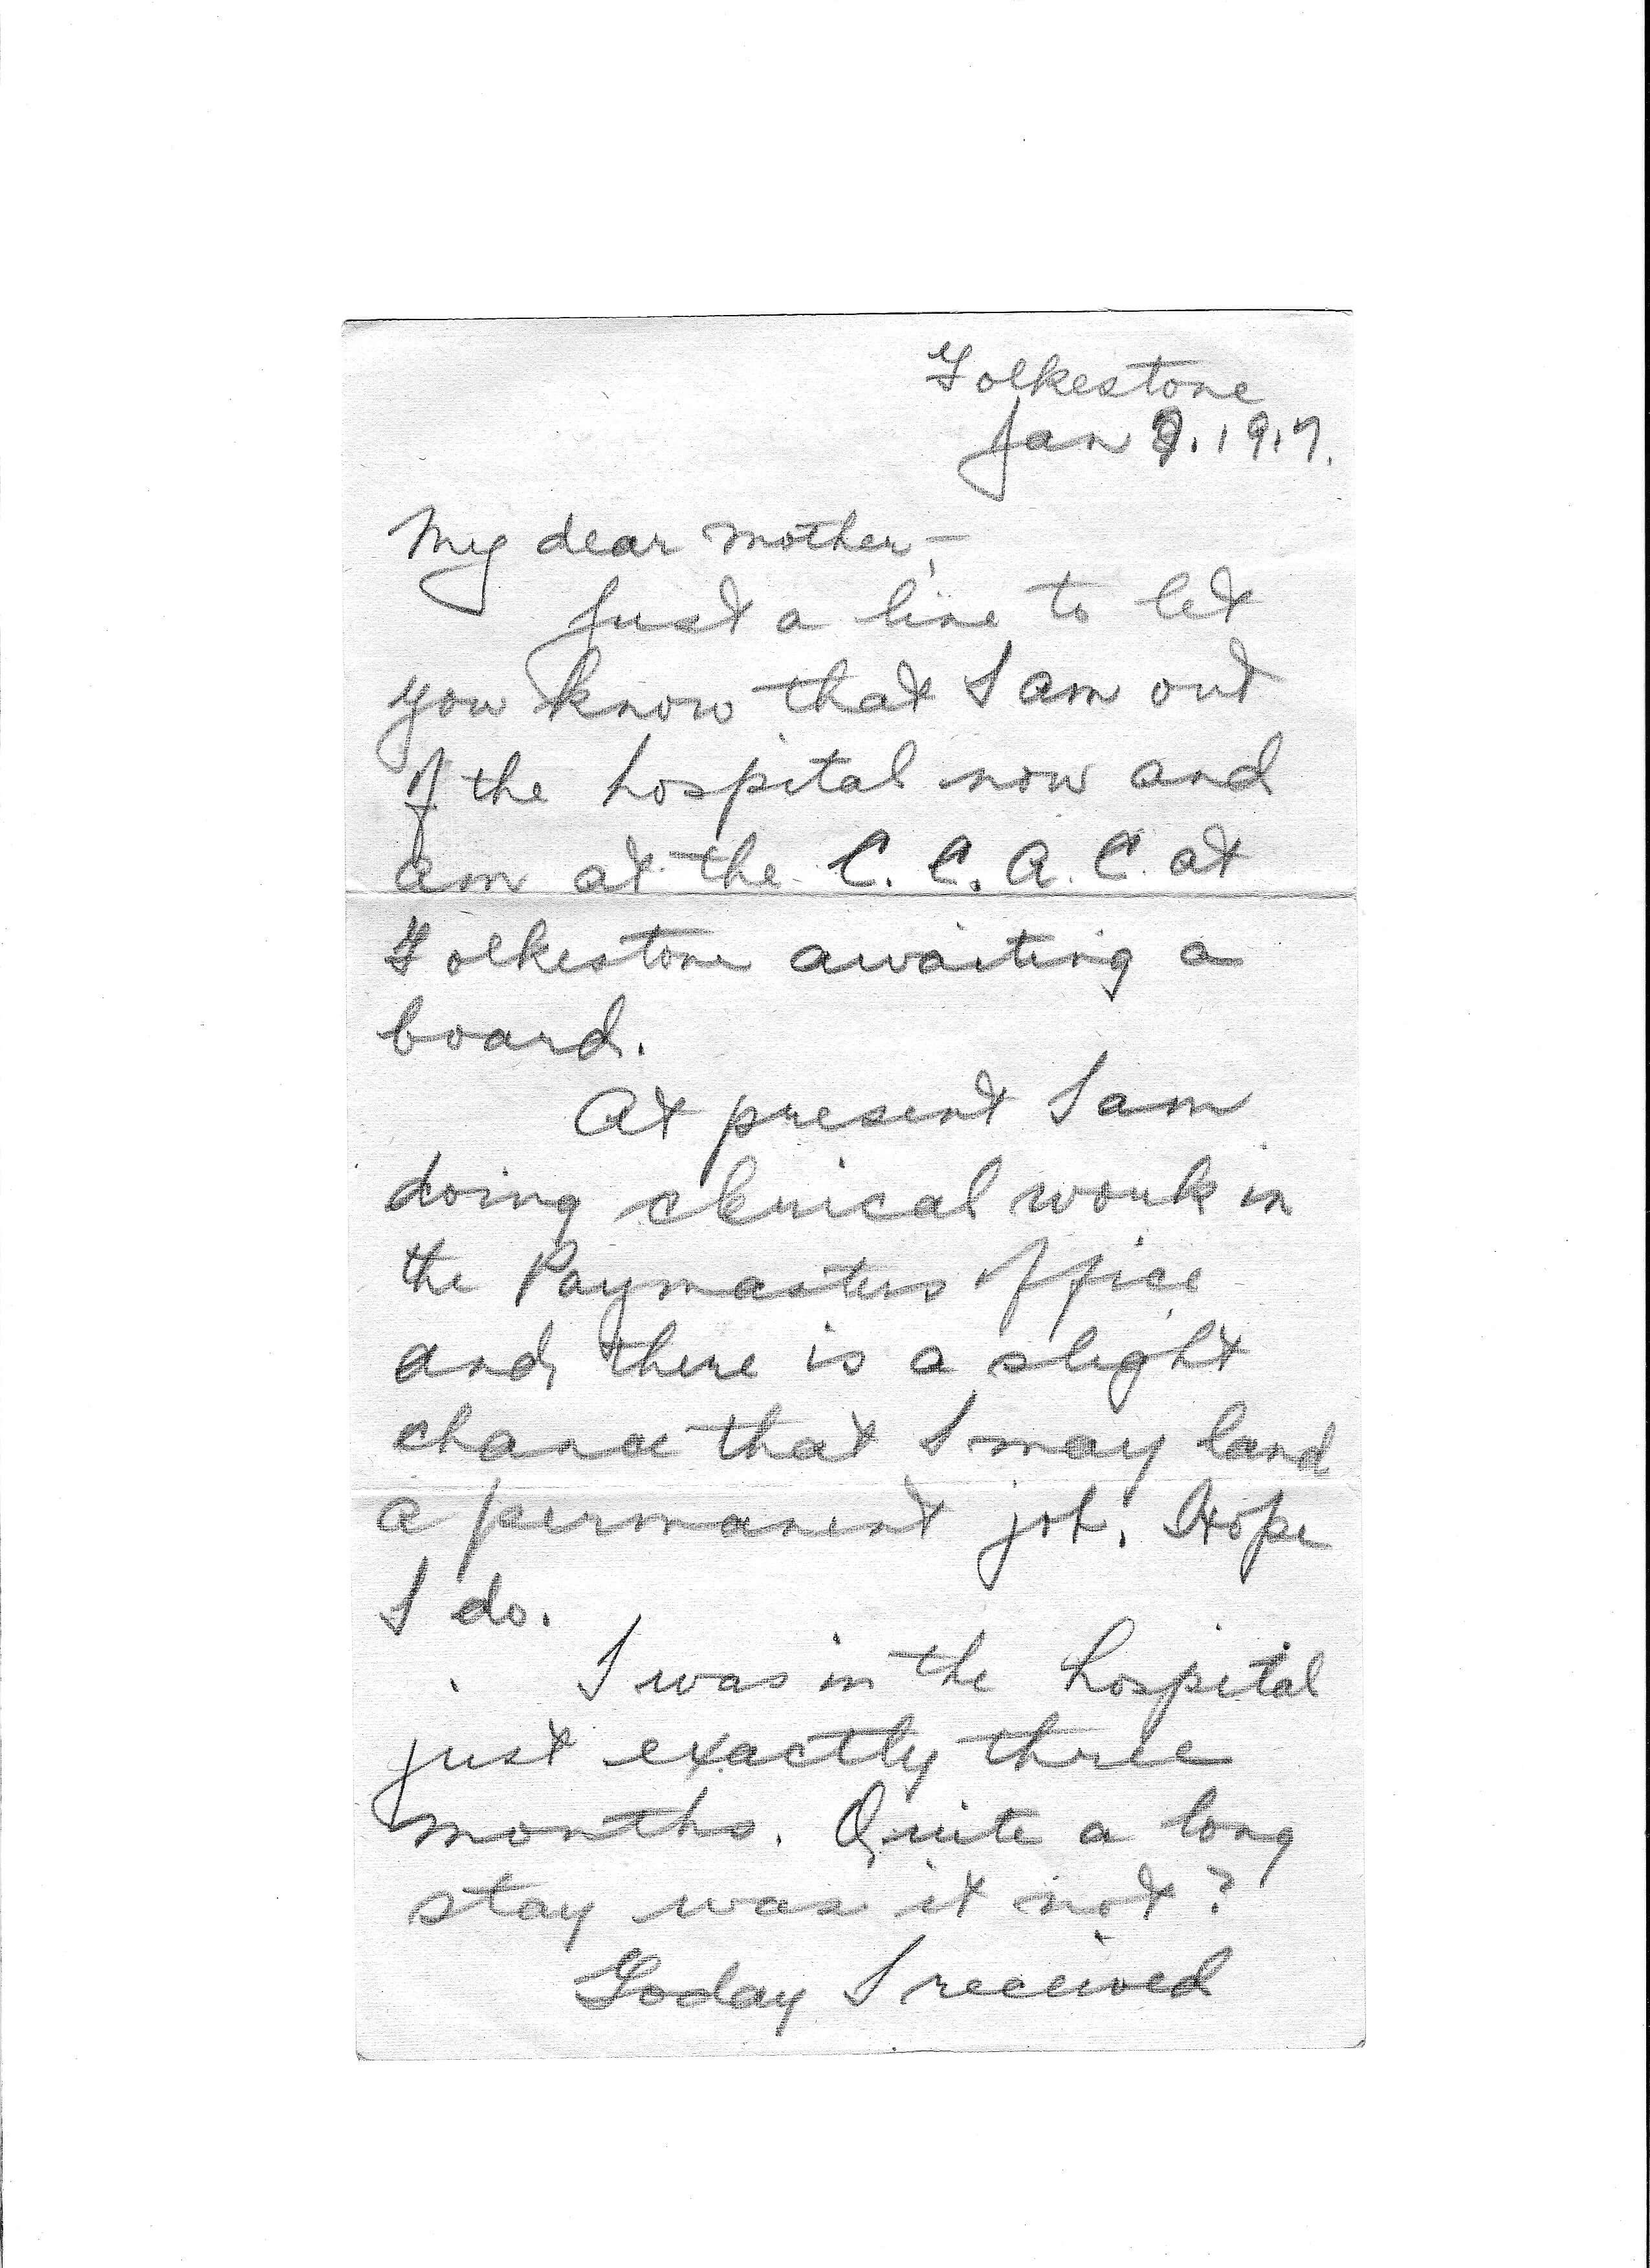 Folkestone
Jan 9. 1917.
My dear mother,—
Just a line to let
you know that I am out
of the hospital now and
am at the C. C. A. C. at
Folkestone awaiting a
board.
At present I am
doing clerical work in
the Paymasters office
and there is a slight
chance that I may land
a permanent job. Hope
I do.
I was in the hospital
just exactly three
months. Quite a long
stay was it not?
Today I received